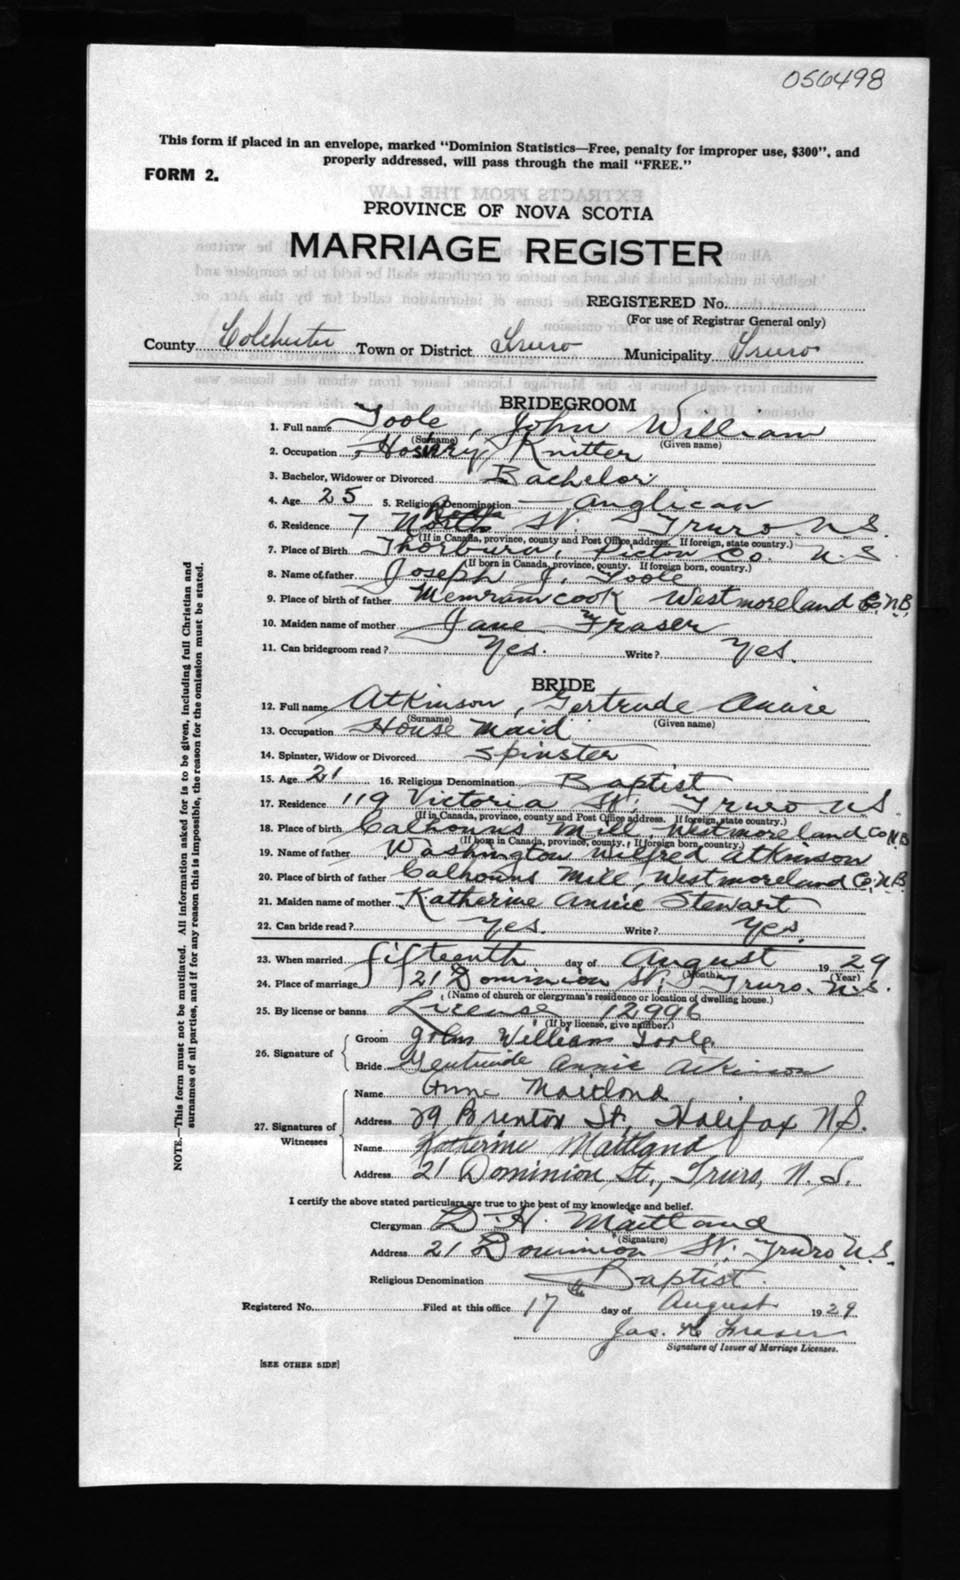 056498
This form if placed in an envelope, marked "Dominion Statistics—Free, penalty for improper use, $300", and
properly addressed, will pass through the mail "FREE."
FORM 2.
EXTRACTS FROM THE LAW
PROVINCE OF NOVA SCOTIA
MARRIAGE REGISTER
REGISTERED No.
(For use of Registrar General only)
County Colchester Town or District Truro Municipality Truro
BRIDEGROOM
1. Full name Toole, John William
(Surname) (Given name)
2. Occupation Hosiery Knitter
3. Bachelor, Widower or Divorced Bachelor
4. Age 25 5. Religious Denomination Anglican
6. Residence 7 North St. Truro N.S.
(If in Canada, province, county and Post Office address. If foreign, state country.)
7. Place of Birth Thorburn, Pictou Co. N.S
(If born in Canada, province, county. If foreign born, country.)
8. Name of father Joseph J. Toole
9. Place of birth of father Memramcook Westmoreland Co. N.B.
10. Maiden name of mother Jane Fraser
11. Can bridegroom read? Yes. Write? Yes.
BRIDE
12. Full name Atkinson, Gertrude Annie
(Surname) (Given name)
13. Occupation House Maid
14. Spinster, Widow or Divorced Spinster
15. Age 21 16. Religious Denomination Baptist
17. Residence 119 Victoria St. Truro N.S
(If in Canada, province, county and Post Office address. If foreign, state country.)
18. Place of birth Calhouns Mill Westmoreland Co N.B
(If born in Canada, province, county. If foreign born, country.)
19. Name of father Washington Wilfred Atkinson
20. Place of birth of father Calhouns Mill, Westmoreland Co. N.B.
21. Maiden name of mother Katherine Annie Stewart
22. Can bride read? Yes. Write? Yes.
23. When married fifteenth day of August 1929
(Month) (Year)
24. Place of marriage 21 Dominion St. Truro. N.S.
(Name of church or clergyman's residence or location of dwelling house.)
25. By license or banns License 12996
(If by license, give number.)
26. Signature of Groom John William Toole
Bride Gertrude Annie Atkinson
27. Signatures of Witnesses
Name Anne Maitland
Address 29 Brenton St, Halifax N.S.
Name Katherine Maitland
Address 21 Dominion St., Truro, N.S.
I certify the above stated particulars are true to the best of my knowledge and belief.
Clergyman D. H. Maitland
(Signature)
Address 21 Dominion St. Truro N.S.
Religious Denomination Baptist.
Registered No. Filed at this office 17th day of August 1929
Jas. Fraser
Signature of Issuer of Marriage Licenses.
[SEE OTHER SIDE]
NOTE.—This form must not be mutilated. All information asked for is to be given, including full Christian and
surnames of all parties, and if for any reason this is impossible, the reason for the omission must be stated.